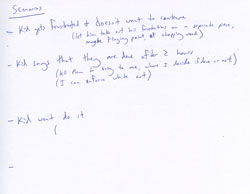 Scenarios
- Kid gets frustrated & doesn't want to continue
(let him take out his frustrations on a separate piece,
maybe flinging paint, or chopping wood)
- Kid says that they are done after 2 hours
(its then to bring to me, where I decide if done or not)
(I can enforce white out)
- Kid won't do it
(
-